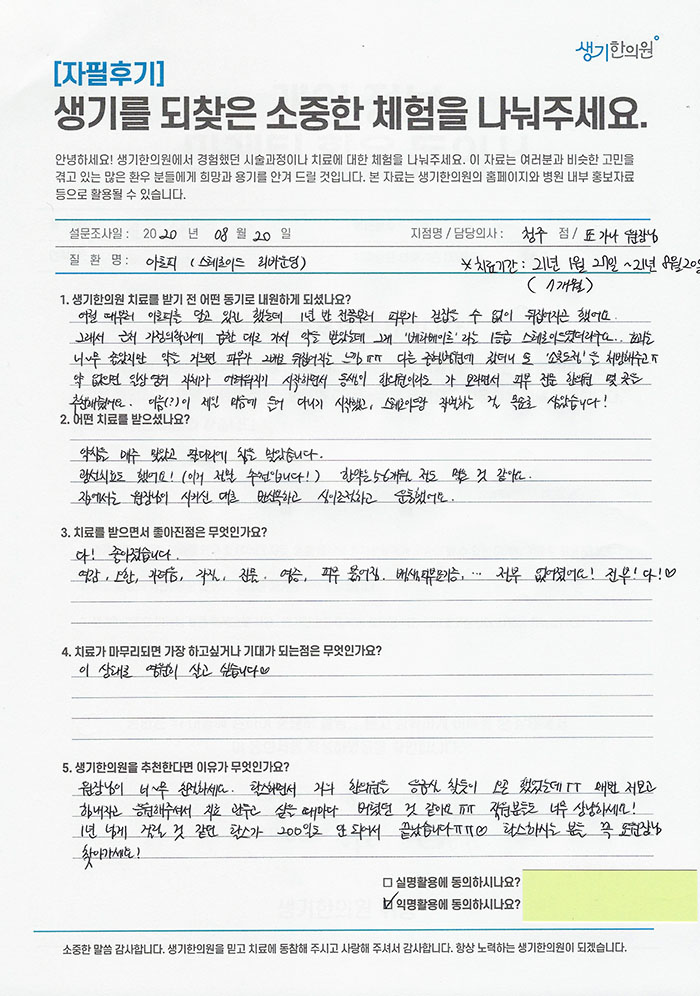 생기한의원
[자필후기]
생기를 되찾은 소중한 체험을 나눠주세요.
안녕하세요! 생기한의원에서 경험했던 시술과정이나 치료에 대한 체험을 나눠주세요. 이 자료는 여러분과 비슷한 고민을
겪고 있는 많은 환우 분들에게 희망과 용기를 안겨 드릴 것입니다. 본 자료는 생기한의원의 홈페이지와 병원 내부 홍보자료
등으로 활용될 수 있습니다.
설문조사일 : 2020 년 08 월 20 일 지점명 / 담당의사 : 청주 점 / 원장님
질 환 명 : 아토피 (스테로이드 리바운딩) ※치료기간: 21년 1월 27일 ~ 21년 8월 20일
(7개월)
1. 생기한의원 치료를 받기 전 어떤 동기로 내원하게 되셨나요?
어릴 때부터 아토피를 앓고 있긴 했는데 1년 반 전쯤부터 피부가 걷잡을 수 없이 뒤집어지곤 했어요.
그래서 근처 가정의학과에 급한 대로 가서 약을 받았는데 그게 '베타베이트'라는 1등급 스테로이드였더라구요.. 효과는
너~무 좋았지만 약을 끊으면 피부가 그대로 뒤집어지는 느낌ㅠㅠ 다른 갔더니 또 '소론도정'을 처방해주고ㅠ
약 없으면 일상생활 자체가 어려워지기 시작하면서 동생이 한의원이라도 가 보라면서 피부 전문 한의원 몇 곳을
추천해줬어요. 이름(?)이 제일 마음에 들어 다니기 시작했고, 스테로이드와 작별하는 걸 목표로 삼았습니다!
2. 어떤 치료를 받으셨나요?
약침을 매주 맞았고 팔다리에 침을 맞았습니다.
광선치료도 했어요! (이거 전딜 수면입니다!) 한약은 5-6개월 정도 먹은 것 같아요.
집에서는 원장님이 시키신 대로 반신욕하고 식이조절하고 운동했어요.
3. 치료를 받으면서 좋아진점은 무엇인가요?
다! 좋아졌습니다.
열감, 오한, 가려움, 각질, 진물, 염증, 피부 붉어짐, ... 전부 없어졌어요! 전부! 다!♡
4. 치료가 마무리되면 가장 하고싶거나 기대가 되는점은 무엇인가요?
이 상태로 영원히 살고 싶습니다♡
5. 생기한의원을 추천한다면 이유가 무엇인가요?
원장님이 너~무 친절하세요. 탈스하면서 거의 한의원을 응급실 찾듯이 오곤 했었는데ㅠㅠ 매번
응원해주셔서 치료 관두고 싶을 때마다 버텼던 것 같아요ㅠㅠ 직원분들도 너무 상냥하세요!
1년 넘게 걸릴 것 같던 탈스가 200일도 안 되어서 끝났습니다ㅠㅠ♡ 탈스하시는 분들 꼭 원장님
찾아가세요!
□ 실명활용에 동의하시나요?
☑ 익명활용에 동의하시나요?
소중한 말씀 감사합니다. 생기한의원을 믿고 치료에 동참해 주시고 사랑해 주셔서 감사합니다. 항상 노력하는 생기한의원이 되겠습니다.